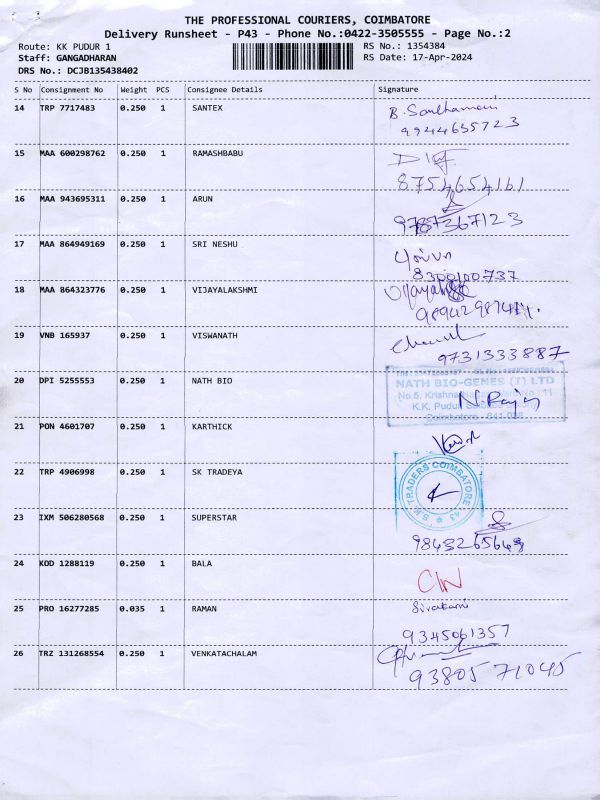 THE PROFESSIONAL COURIERS, COIMBATORE
Delivery Runsheet - P43 - Phone No.:0422-3505555 - Page No.:2
Route: KK PUDUR 1
RS No.: 1354384
Staff: GANGADHARAN
RS Date: 17-Apr-2024
DRS No.: DCJB135438402
S No Consignment No Weight PCS Consignee Details Signature
14 TRP 7717483 0.250 1 SANTEX
9944635723
15 MAA 600298762 0.250 1 RAMASHBABU
8754654161
16 MAA 943695311 0.250 1 ARUN
9787367123
17 MAA 864949169 0.250 1 SRI NESHU
8300100737
18 MAA 864323776 0.250 1 VIJAYALAKSHMI
19 VNB 165937 0.250 1 VISWANATH
9731333887
20 DPI 5255553 0.250 1 NATH BIO
NATH BIO-GENES (I) LTD
No.5, Krishna 11
K.K. Pudur
Coimbatore - 641 038
21 PON 4601707 0.250 1 KARTHICK
22 TRP 4906998 0.250 1 SK TRADEYA
S.K TRADERS COIMBATORE 43
23 IXM 506280568 0.250 1 SUPERSTAR
24 KOD 1288119 0.250 1 BALA
25 PRO 16277285 0.035 1 RAMAN
Sivakami
9345061357
26 TRZ 131268554 0.250 1 VENKATACHALAM
9380571045